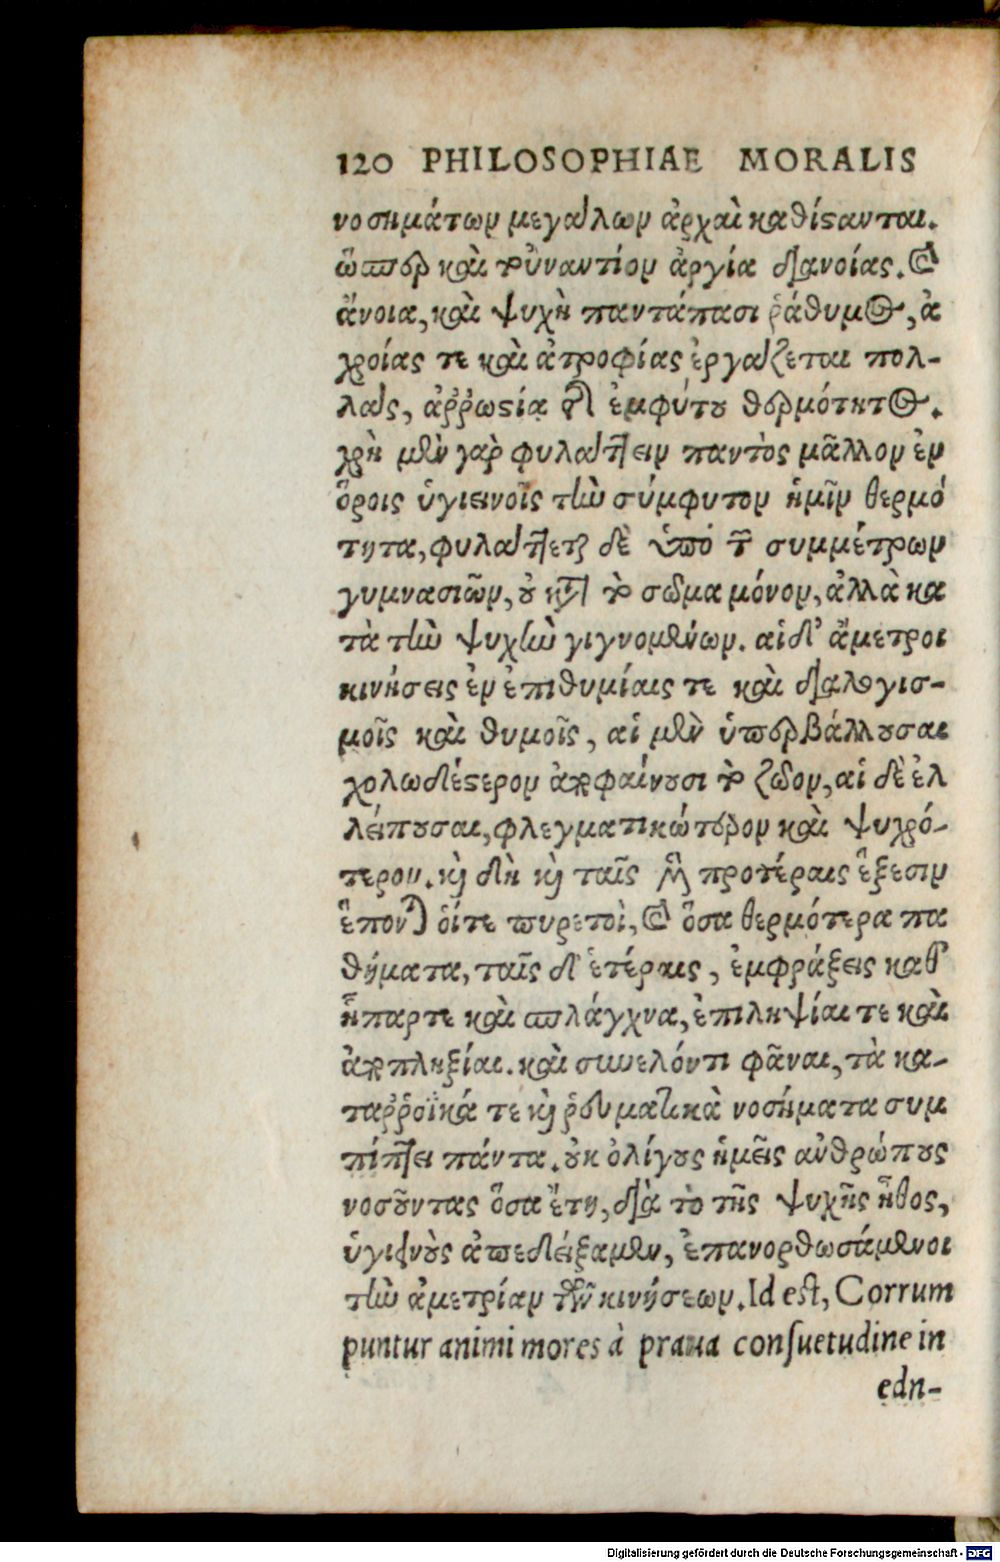 120 PHILOSOPHIAE MORALIS
νοσημάτων μεγάλων ἀρχαὶ καθίσανται.
ὥσπερ καὶ τοὐναντίον ἀργία διανοίας. καὶ
ἄνοια, καὶ ψυχὴ παντάπασι ῥάθυμος, ἀ
χροίας τε καὶ ἀτροφίας ἐργάζεται πολ-
λάς, ἀῤῥωστίᾳ τοῦ ἐμφύτου θερμότητος.
χρὴ μὲν γὰρ φυλάττειν παντὸς μᾶλλον ἐν
ὅροις ὑγιεινοῖς τὴν σύμφυτον ἡμῖν θερμό
τητα, φυλάττεται δὲ ὑπὸ τῶν συμμέτρων
γυμνασιῶν, οὐ κατὰ τὸ σῶμα μόνον, ἀλλὰ κα
τὰ τὴν ψυχὴν γιγνομένων. αἱ δ’ ἄμετροι
κινήσεις ἐν ἐπιθυμίαις τε καὶ διαλογισ-
μοῖς καὶ θυμοῖς, αἱ μὲν ὑπερβάλλουσαι
χολωδέστερον ἀποφαίνουσι τὸ ζῶον, αἱ δὲ ἐλ
λείπουσαι, φλεγματικώτερον καὶ ψυχρό-
τερον. καὶ δὴ καὶ ταῖς μὲν προτέραις ἕξεσιν
ἕπονται οἵτε πυρετοὶ, καὶ ὅσα θερμότερα πα
θήματα, ταῖς δ’ ἑτέραις, ἐμφράξεις καθ’
ἧπαρτε καὶ σπλάγχνα, ἐπιληψίαι τε καὶ
ἀποπληξίαι. καὶ συνελόντι φᾶναι, τὰ κα-
ταῤῥοϊκά τε καὶ ῥευματικὰ νοσήματα συμ
πίπτει πάντα. οὐκ ὀλίγους ἡμεῖς ἀνθρώπους
νοσοῦντας ὅσα ἔτη, διὰ τὸ τῆς ψυχῆς ἦθος,
ὑγιεινοὺς ἀπεδείξαμεν, ἐπανορθωσάμενοι
τὴν ἀμετρίαν τῶν κινήσεων. Id est, Corrum
puntur animi mores à praua conſuetudine in
edn-
Digitalisierung gefördert durch die Deutsche Forschungsgemeinschaft - DFG